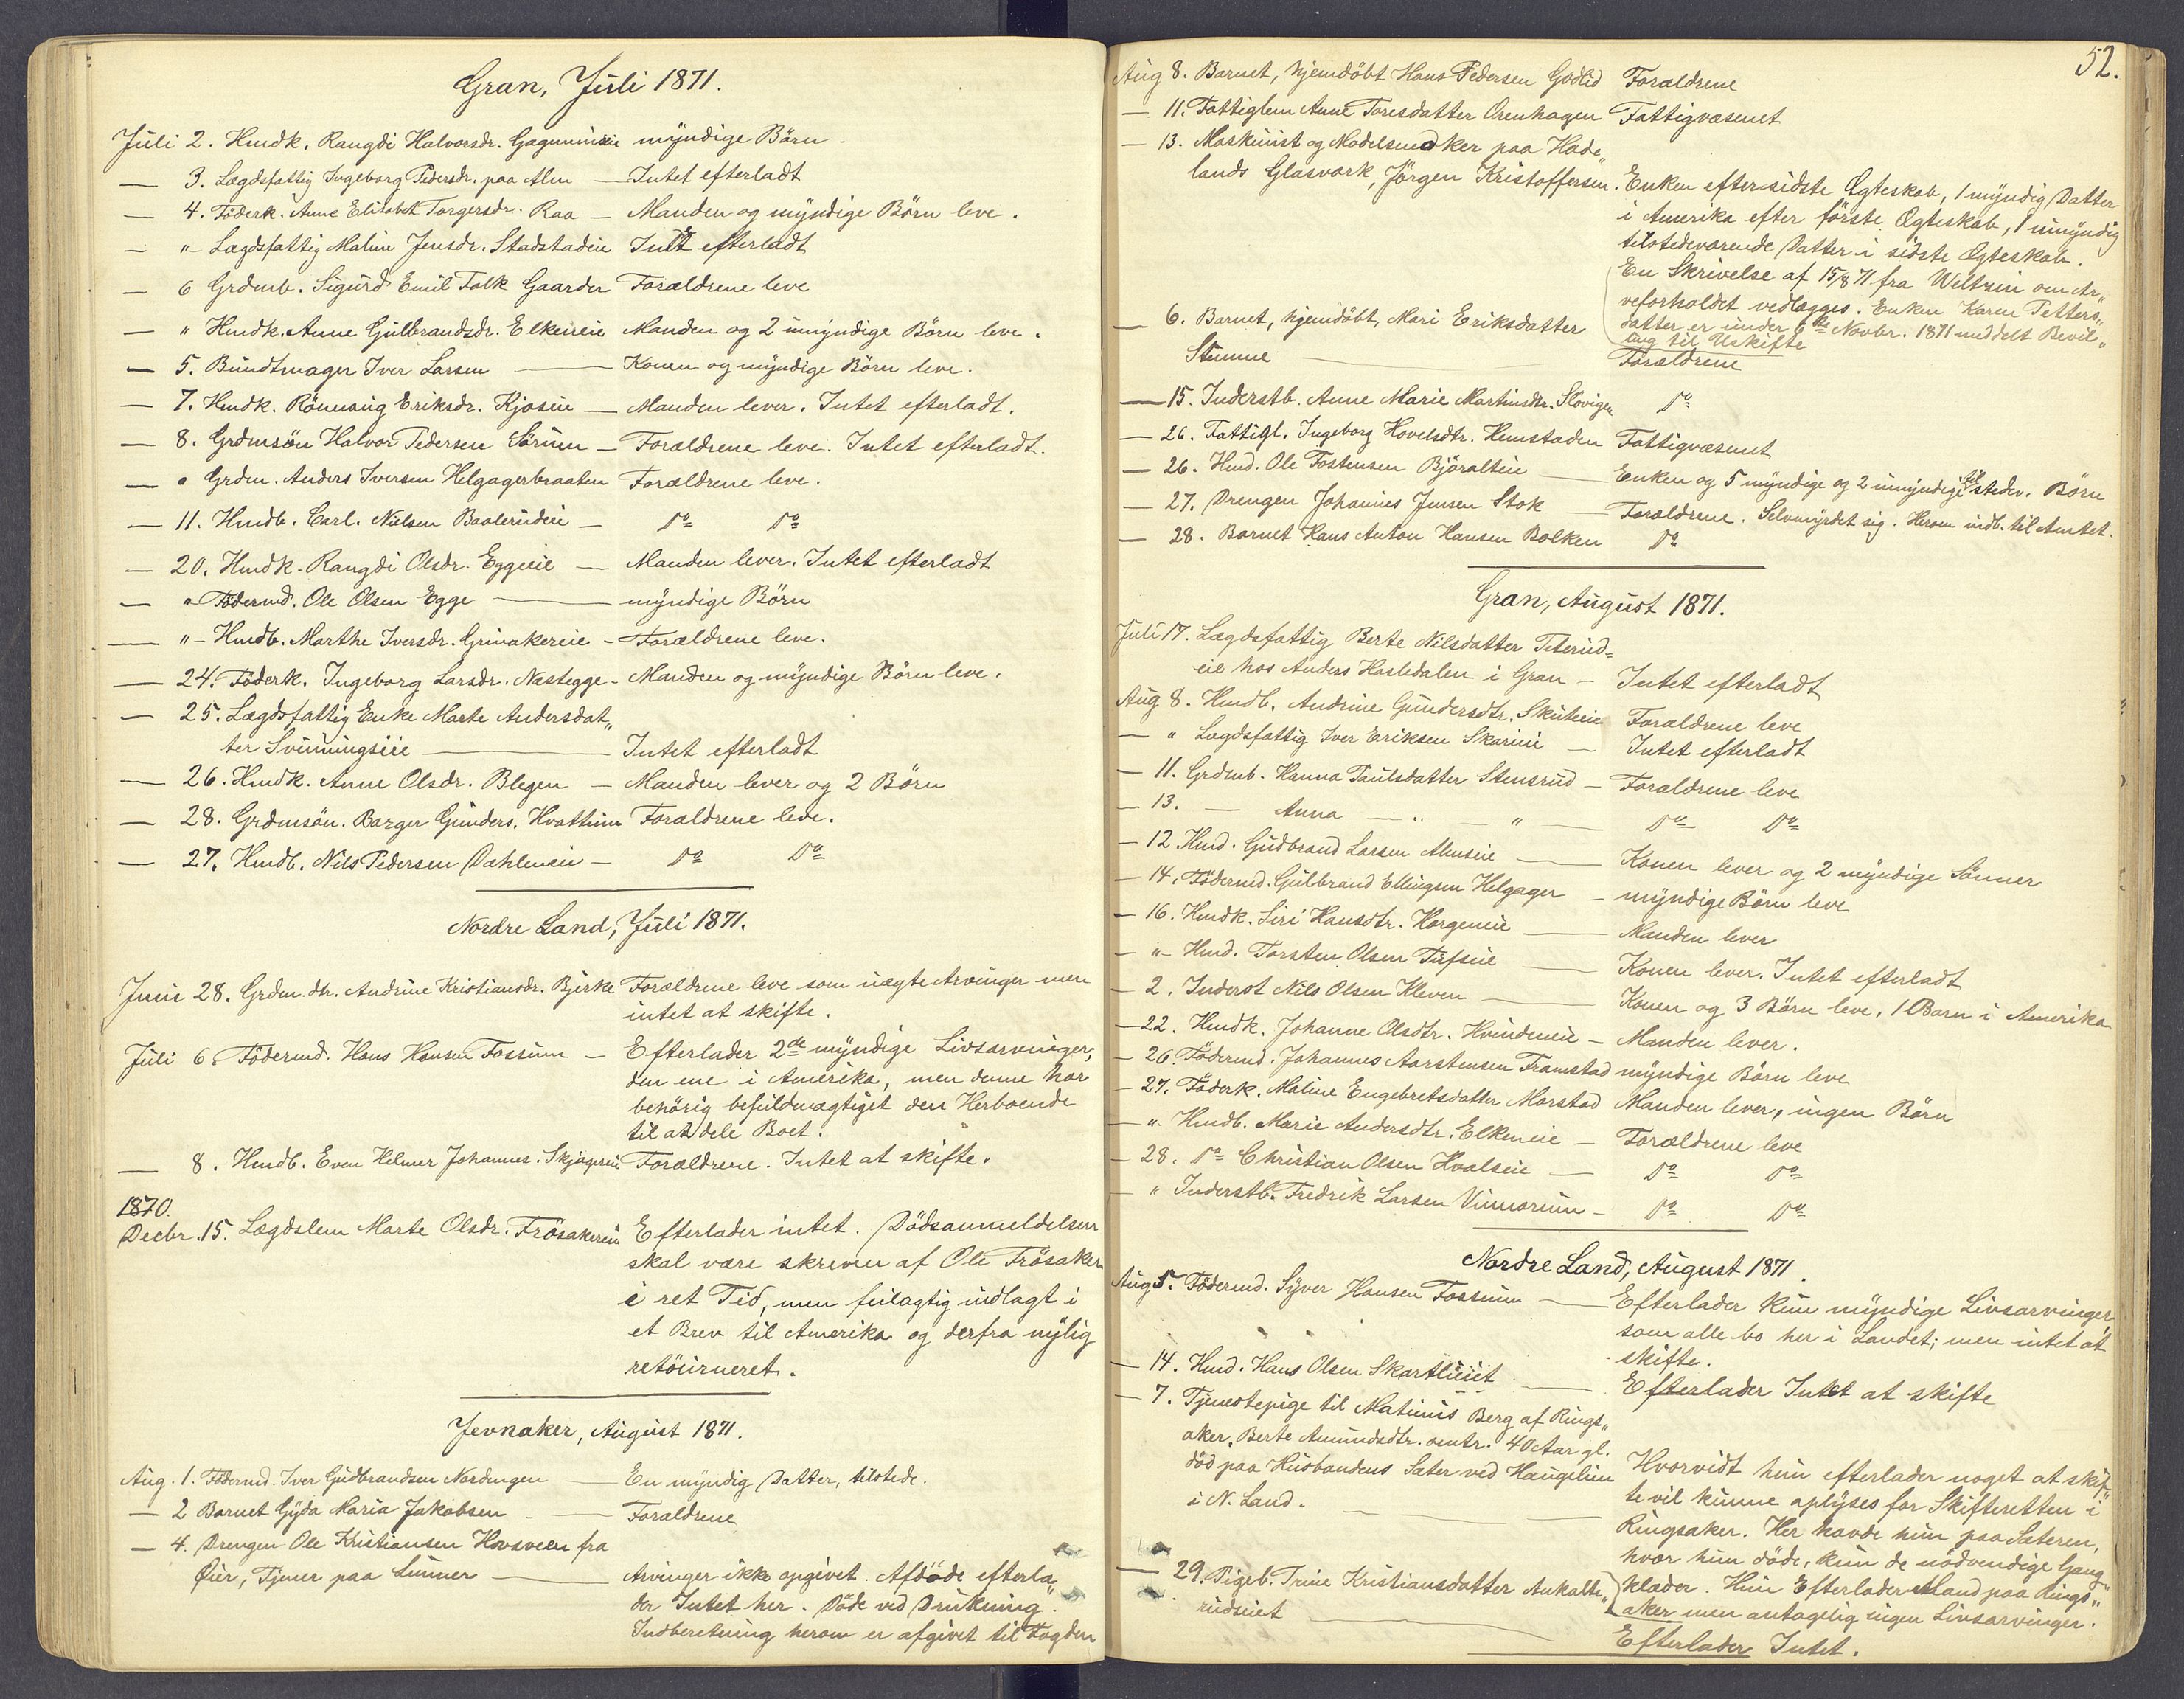 Gran, Juli 1871.
Juli 2. Hmdk. Rangdi Halvorsdr. Gagnumseie myndige Børn -
— 3. Lægdsfattig Ingeborg Pedersdr. paa Alm — Intet efterladt
— 4. Föderk. Anne Elisabeth Torgersdr. Raa — Manden og myndige Börn leve.
— "- Lægdsfattig Maline Jensdr. Stadstadeie Intet efterladt
— 6 Grdmb. Sigurd Emil Falk Gaarder Forældrene leve
— " Hmdk. Anne Gulbrandsdr. Elkeneie Manden og 2 umyndige Börn leve.
— 5. Bundtmager Iver Larsen — Konen og myndige Börn leve.
— 7. Hmdk. Rönnaug Eriksdr. Kjoseie — Manden lever. Intet efterladt.
— 8. Grdmsön Halvor Pedersen Sörum — Forældrene leve. Intet efterladt.
— " Grdm. Anders Iversen Helgagerbraaten Forældrene leve.
— 11. Hmdb. Carl. Nielsen Baalerudeie — Do Do
— 20. Hmdk. Rangdi Olsdr. Eggeeie — Manden lever. Intet efterladt
— " Födermd. Ole Olsen Egge — myndige Börn
— "- Hmdb. Marthe Iversdr. Grinakereie - Forældrene leve.
— 24. Föderk. Ingeborg Larsdr. Næstegge - Manden og myndige Börn leve.
— 25. Lægdsfattig Enke Marte Andersdat„
ter Svinningseie — Intet efterladt
— 26. Hmdk. Anne Olsdr. Blegen — Manden lever og 2 Börn
— 28. Grdmsön. Borger Gunders. Hvattum Forældrene leve.
— 27. Hmdb. Nils Pedersen Dahlneie — Do Do
Nordre Land, Juli 1871.
Juni 28. Grdm. dtr. Andrine Kristiansdr. Bjerke Forældrene leve som uægte Arvinger men
intet at skifte.
Juli 6. Födermd. Hans Hansen Fossum — Efterlader 2de myndige Livsarvinger,
den ene i Amerika, men denne har
behörig befuldmægtiget den Herboende
til at dele Boet.
— 8. Hmdb. Even Helmer Johannes. Skjagereie Forældrene. Intet at skifte.
1870.
Decbr. 15. Lægdslem Marte Olsdr. Frösakereie Efterlader intet. Dödsanmeldelsen
skal være skreven af Ole Frösaker
i ret Tid, men feilagtig indlagt i
et Brev til Amerika og derfra nylig
retöurneret.
Jevnaker, August 1871.
Aug. 1. Födermd. Iver Gudbrandsen Nordengen — En myndig Datter, tilstede.
— 2 Barnet Gyda Maria Jakobsen — Forældrene
— 4. Drengen Ole Kristiansen Hovsveen fra
Öier, Tjener paa Lunner — Arvinger ikke opgivet. Afdöde efterla„
der Intet her. Döde ved Drukning.
Indberetning herom er afgivet til Fogden
52.
Aug 8. Barnet, hjemdöbt Hans Pedersen Godlid Forældrene
— 11. Fattiglem Anne Toresdatter Orenhagen Fattigvæsenet
— 13. Maskinist og Modelsnedker paa Hade„
lands Glasværk, Jörgen Kristoffersen. Enken efter sidste Ægteskab, 1 myndig Datter
i Amerika efter förste Ægteskab, 1 umyndig
tilstedeværende Datter i sidste Ægteskab.
En Skrivelse af 15/8 71 fra Weltzin om Ar„
veforholdet vedlægges. Enken Karen Petters„
datter er under 6te Novbr. 1871 meddelt Bevil„
ling til Uskifte
— 6. Barnet, hjemdöbt, Mari Eriksdatter
Stumne — Forældrene
— 15. Inderstb. Anne Marie Martinsdtr. Sloviger Do
— 26. Fattigl. Ingeborg Hovelsdtr. Hemstaden Fattigvæsenet
— 26. Hmd. Ole Tostensen Björalteie — Enken og 5 myndige og 2 umyndige tilstedev. Börn
— 27. Drengen Johannes Jensen Stok — Forældrene. Selvmyrdet sig. Herom indb. til Amtet.
— 28. Barnet Hans Anton Hansen Bolken Do
Gran, August 1871.
Juli 17. Lægdsfattig Berte Nilsdatter Teterud=
eie hos Anders Hasledalen i Gran — Intet efterladt
Aug 8. Hmdb. Andrine Gundersdtr. Skuteeie Forældrene leve
— " Lægdsfattig Iver Eriksen Skarini — Intet efterladt
— 11. Grdmb. Hanna Paulsdatter Stensrud — Forældrene leve
— 13. — Anna — " — " — Do Do
— 12. Hmd. Gudbrand Larsen Almseie — Konen lever og 2 myndige Sönner
— 14. Födermd. Gulbrand Ellingsen Helgager — myndige Börn leve
— 16. Hmdk. Siri Hansdtr. Horgeneie — Manden lever
— "- Hmd. Torsten Olsen Tufseie — Konen lever. Intet efterladt
— 2. Inderst Nils Olsen Kleven — Konen og 3 Börn leve, 1 Barn i Amerika
— 22. Hmdk. Johanne Olsdtr. Hvindeneie — Manden lever.
— 26. Födermd. Johannes Aarstensen Framstad myndige Börn leve
— 27. Föderk. Maline Engebretsdatter Morstad Manden lever, ingen Börn
— "- Hmdb. Marie Andersdtr. Elkeneie — Forældrene leve
— 28. Do Christian Olsen Hvalseie — Do Do
— " Inderstb. Fredrik Larsen Vinnorum — Do Do
Nordre Land, August 1871.
Aug 5. Födermd. Syver Hansen Fossum — Efterlader kun myndige Livsarvinger,
som alle bo her i Landet; men intet at
skifte.
— 14. Hmd. Hans Olsen Skartlieiet — Efterlader Intet at skifte
— 7. Tjenestepige til Matinus Berg af Rings„
aker, Berte Amundsdtr. omtr. 40 Aar gl.
död paa Husbondens Sæter ved Haugelien
i N. Land. — Hvorvidt hun efterlader noget at skif„
te vil kunne oplyses for Skifteretten i
Ringsaker. Her havde hun paa Sæteren,
hvor hun döde, kun de nödvendige Gang„
klæder. Hun Efterlader Mand paa Rings„
aker men antagelig ingen Livsarvinger.
— 29. Pigeb. Trine Kristiansdatter Aukalte„
rudseiet — Efterlader Intet.